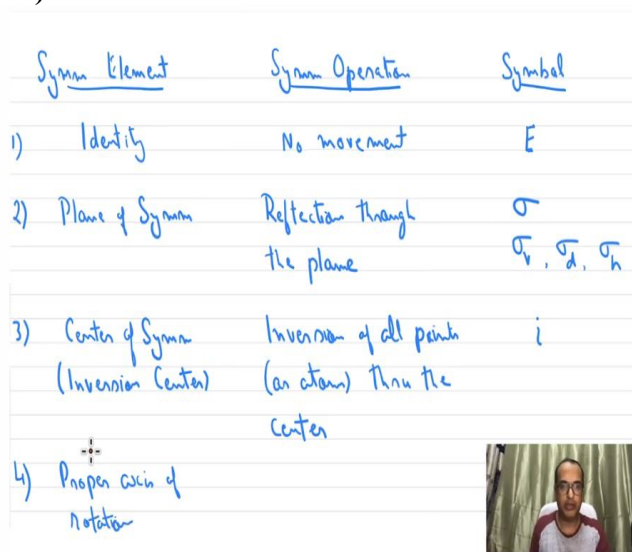 Symm Element Symm Operation Symbol
1) Identity No movement E
2) Plane of Symm Reflection through σ
the plane σv, σd, σh
3) Center of Symm Inversion of all points i
(Inversion Center) (or atoms) thru the
center
4) Proper axis of
rotation